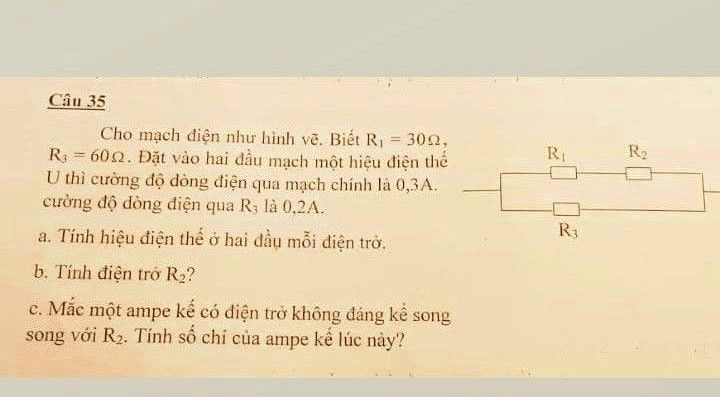 Câu 35
Cho mạch điện như hình vẽ. Biết R₁ = 30Ω,
R₃ = 60Ω. Đặt vào hai đầu mạch một hiệu điện thế
U thì cường độ dòng điện qua mạch chính là 0,3A.
cường độ dòng điện qua R₃ là 0,2A.
a. Tính hiệu điện thế ở hai đầu mỗi điện trở.
b. Tính điện trở R₂?
c. Mắc một ampe kế có điện trở không đáng kể song
song với R₂. Tính số chỉ của ampe kế lúc này?
R₁ R₂
R₃